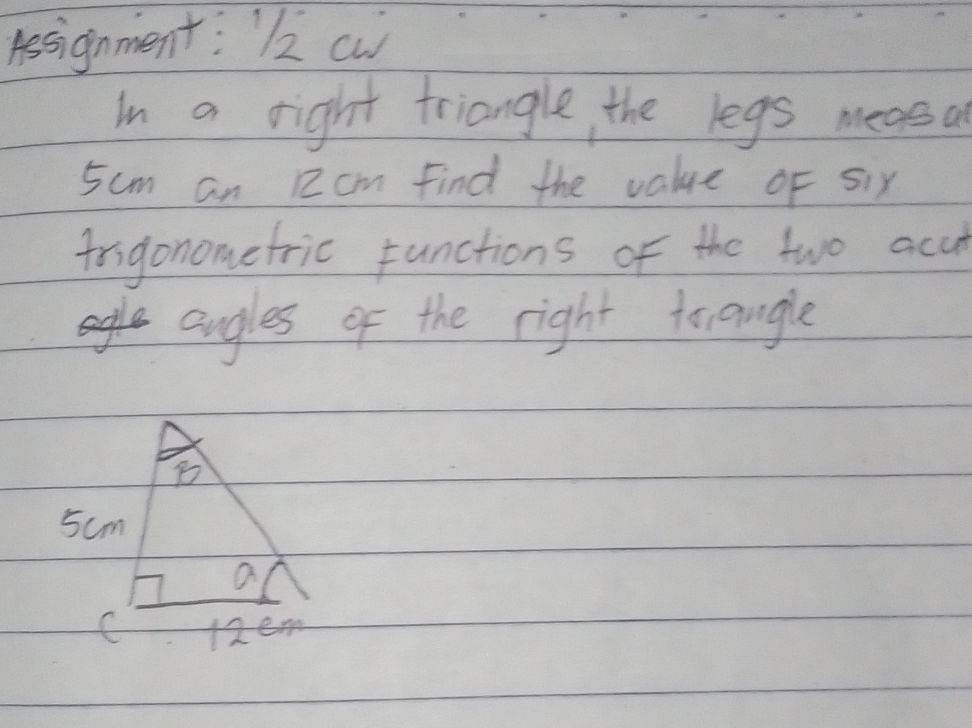 Assignment: 1/2 cw
In a right triangle, the legs measu
5cm an 12cm Find the value of six
trigonometric functions of the two acut
angles of the right triangle
B
5cm
a
C
12cm